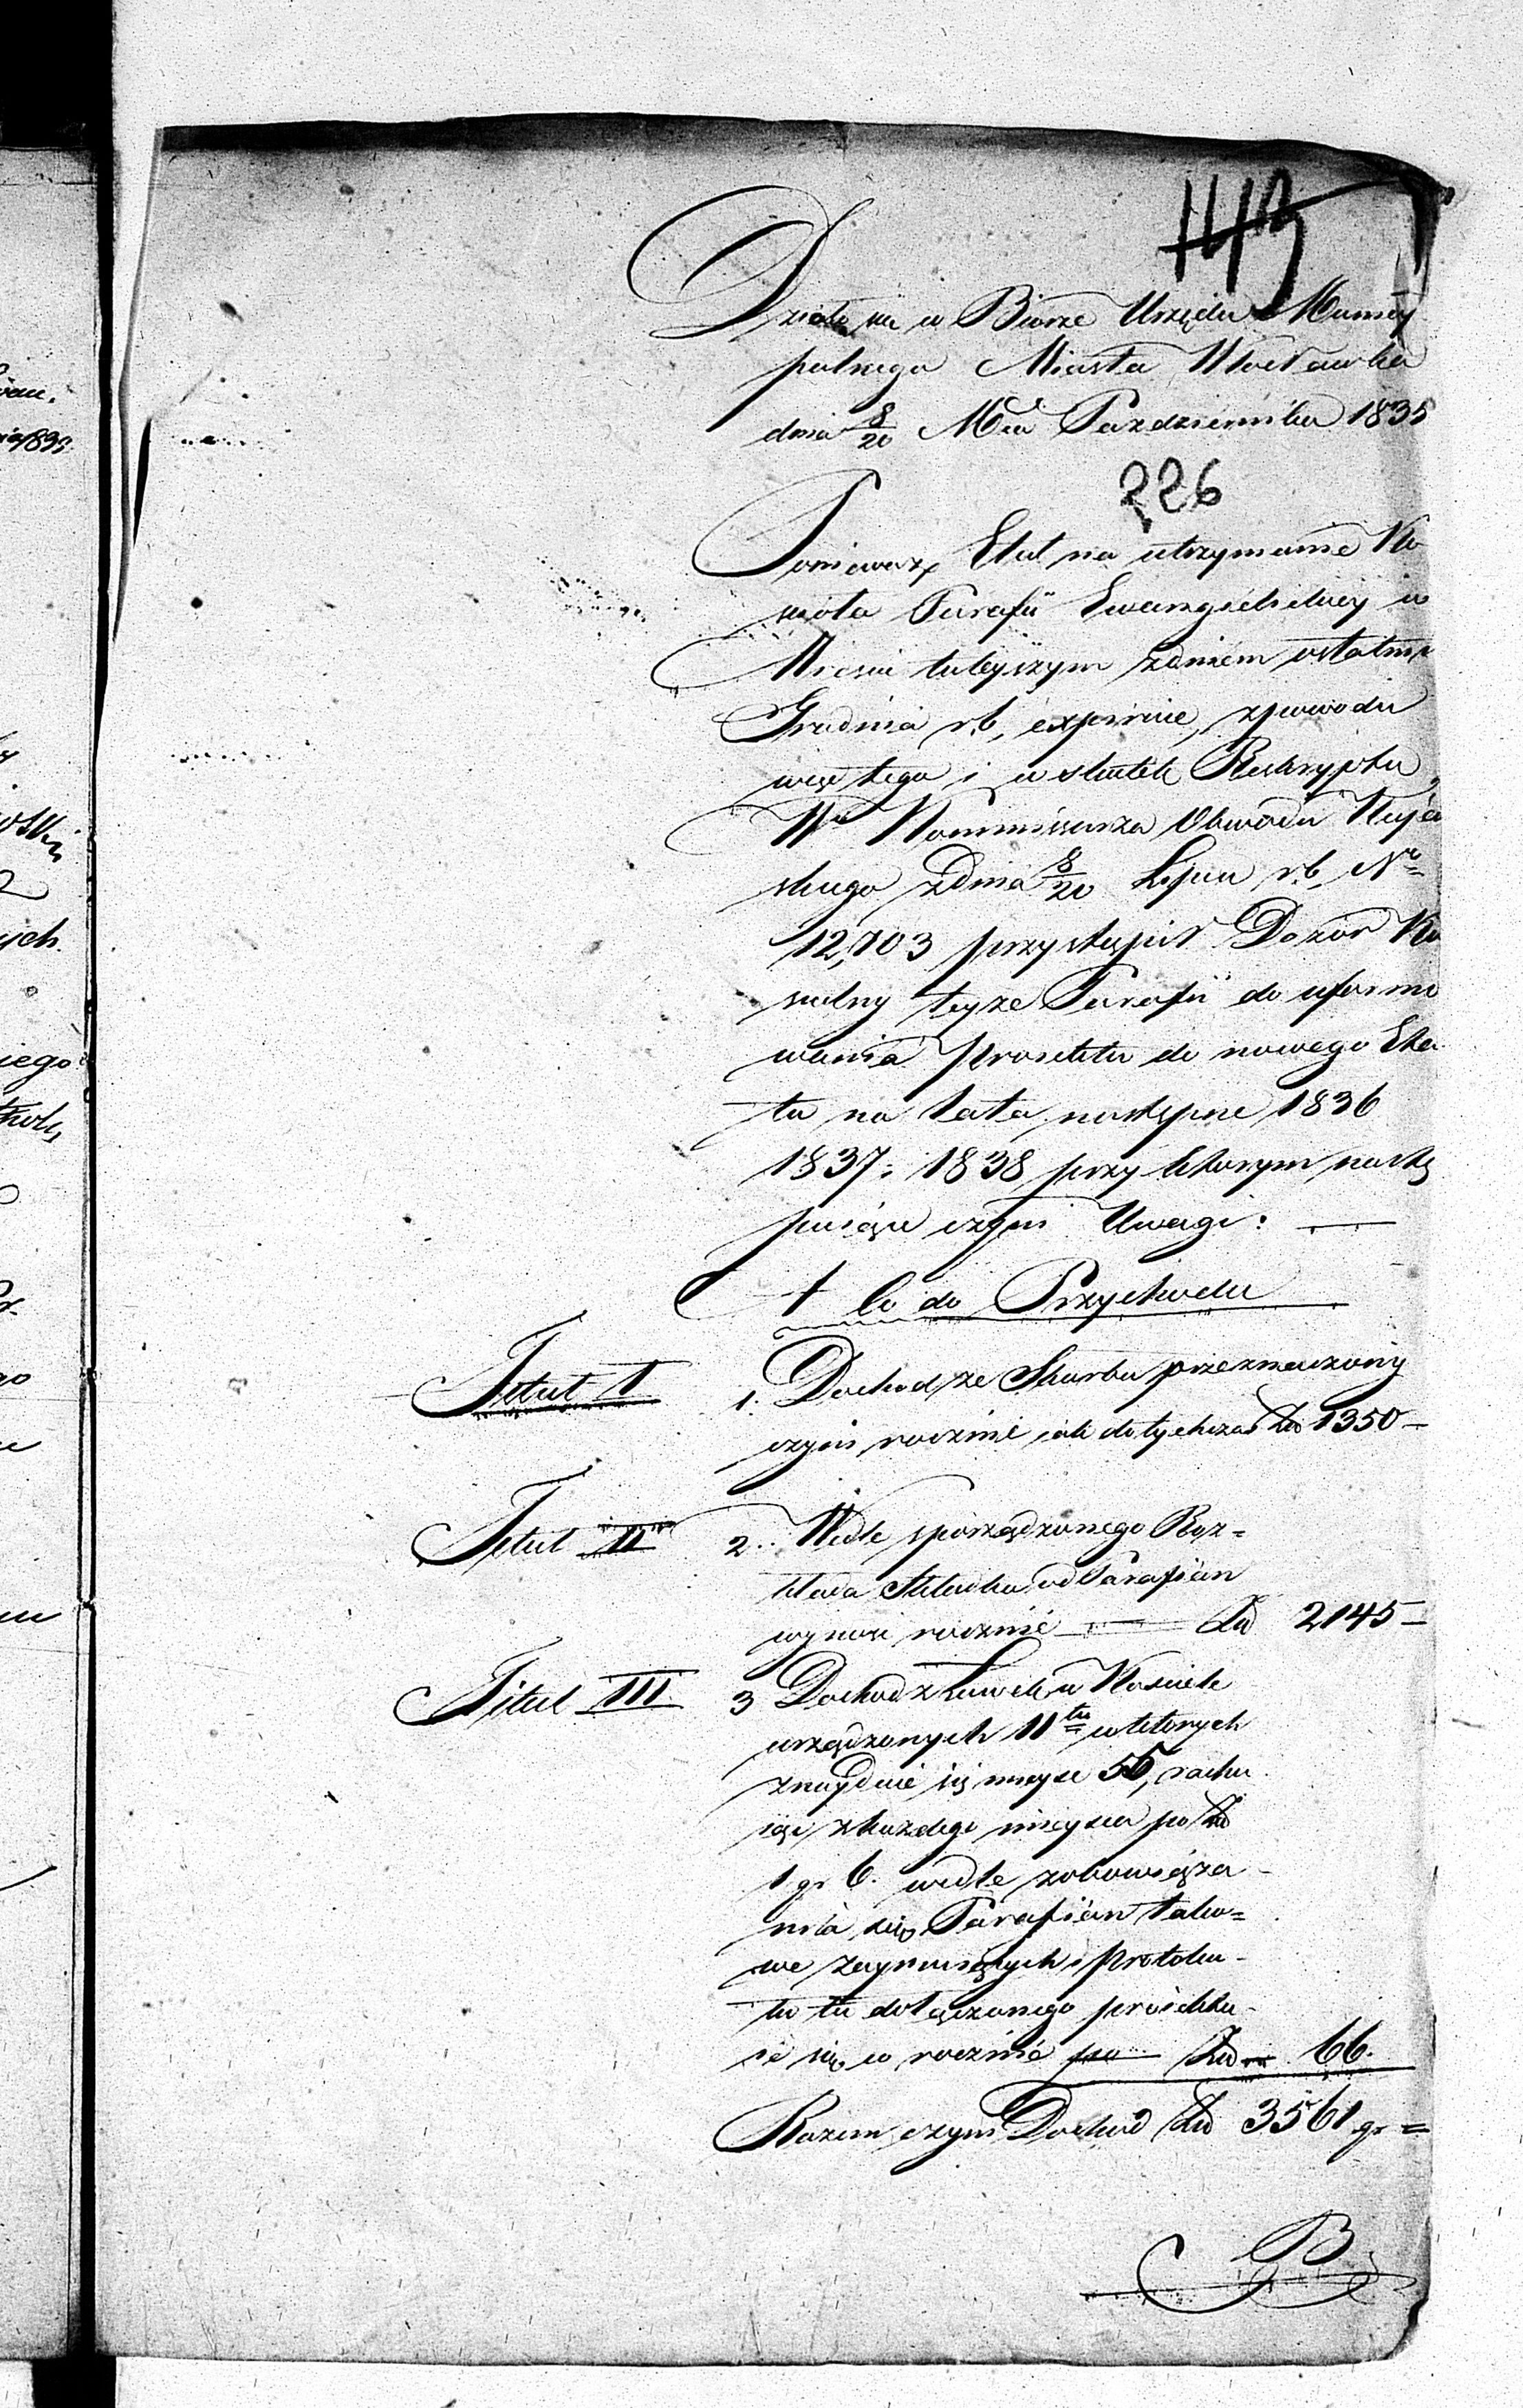 Działo się w Biorze Urzędu Municy
palnego Miasta Włocławka
dnia 8/20 Mca Pazdziernika 1835
226
Poniewasz Etat na utrzymanie Ko
scioła Parafii Ewangielickiey w
Miescie tuteyszym zdniem ostatnim
Grudnia r.b. expiruie, zpowodu
więc tego i w skutek Reskryptu
Wo Kommissarza Obwodu Kuja
skiego zdnia 8/20 Lipca r.b. No
12,703 przystąpił Dozór Ko
scielny teyze Parafii do uformo
wania Proiektu do nowego Eta
tu na lata następne 1836
1837 i 1838 przy którym nastę
puiące czyni Uwagi:
A Co do Przychodu
Tytuł I
1. Dochod ze Skarbu przeznaczony
czyni rocznie iak dotychczas Złp 1350 —
Tytuł II
2. Wedle sporządzonego Roz=
kładu Składka od Parafian
wynosi rocznie — Złp 2145 —
Tytuł III
3 Dochod z Ławek w Kosciele
urządzonych 11tu w których
znayduie się mieysc 55, rachu
iąc zkazdego mieysca po Złp
1 gr 6. wedle zobowiąza-
nia się Parafian tako=
we zaymuiących i Protoku-
łu tu dołączonego proiektu-
ie się w rocznie po Złp 66.
Razem czyni Dochod Złp 3561 gr =
B